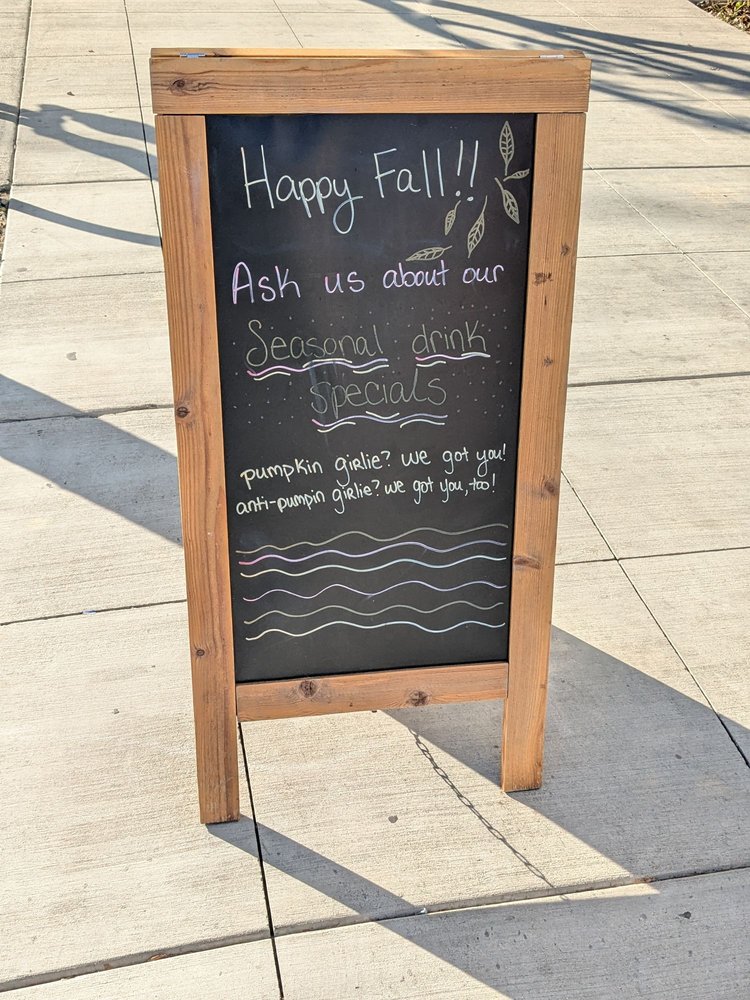 Happy Fall!!
Ask us about our
Seasonal drink
specials
pumpkin girlie? we got you!
anti-pumpin girlie? we got you, too!